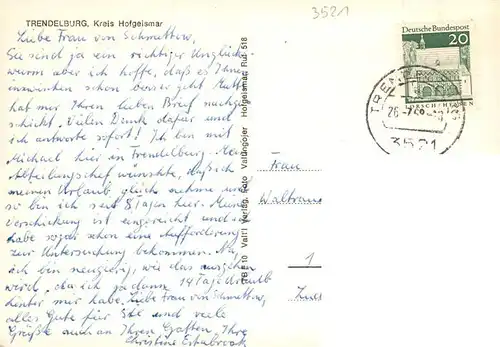 TRENDELBURG, Kreis Hofgeismar
3521
Liebe Frau von Schmettow,
Sie sind ja ein richtiger Unglücks-
wurm aber ich hoffe, daß es Ihnen
inzwischen schon besser geht. Mutti
hat mir Ihren lieben Brief nachge-
schickt. Vielen Dank dafür und
ich antworte sofort! Ich bin mit
Michael hier in Trendelburg. Mein
Abteilungschef wünschte, daß ich
meinen Urlaub gleich nehme und
so bin ich seit 8 Tagen hier. Meine
Verschickung ist eingereicht und ich
habe sogar schon eine Aufforderung
zur Untersuchung bekommen. Na,
ich bin neugierig, wie das ausgehen
wird, da ich ja dann 14 Tage Urlaub
hinter mir habe. Liebe Frau von Schmettow,
alles Gute für Sie und viele
Grüße auch an Ihren Gatten, Ihre
Christine
Hofgeismar, Ruf 518
Verlag, Foto
Deutsche Bundespost
20
LORSCH/HESSEN
3521
Frau
Waltraud
1